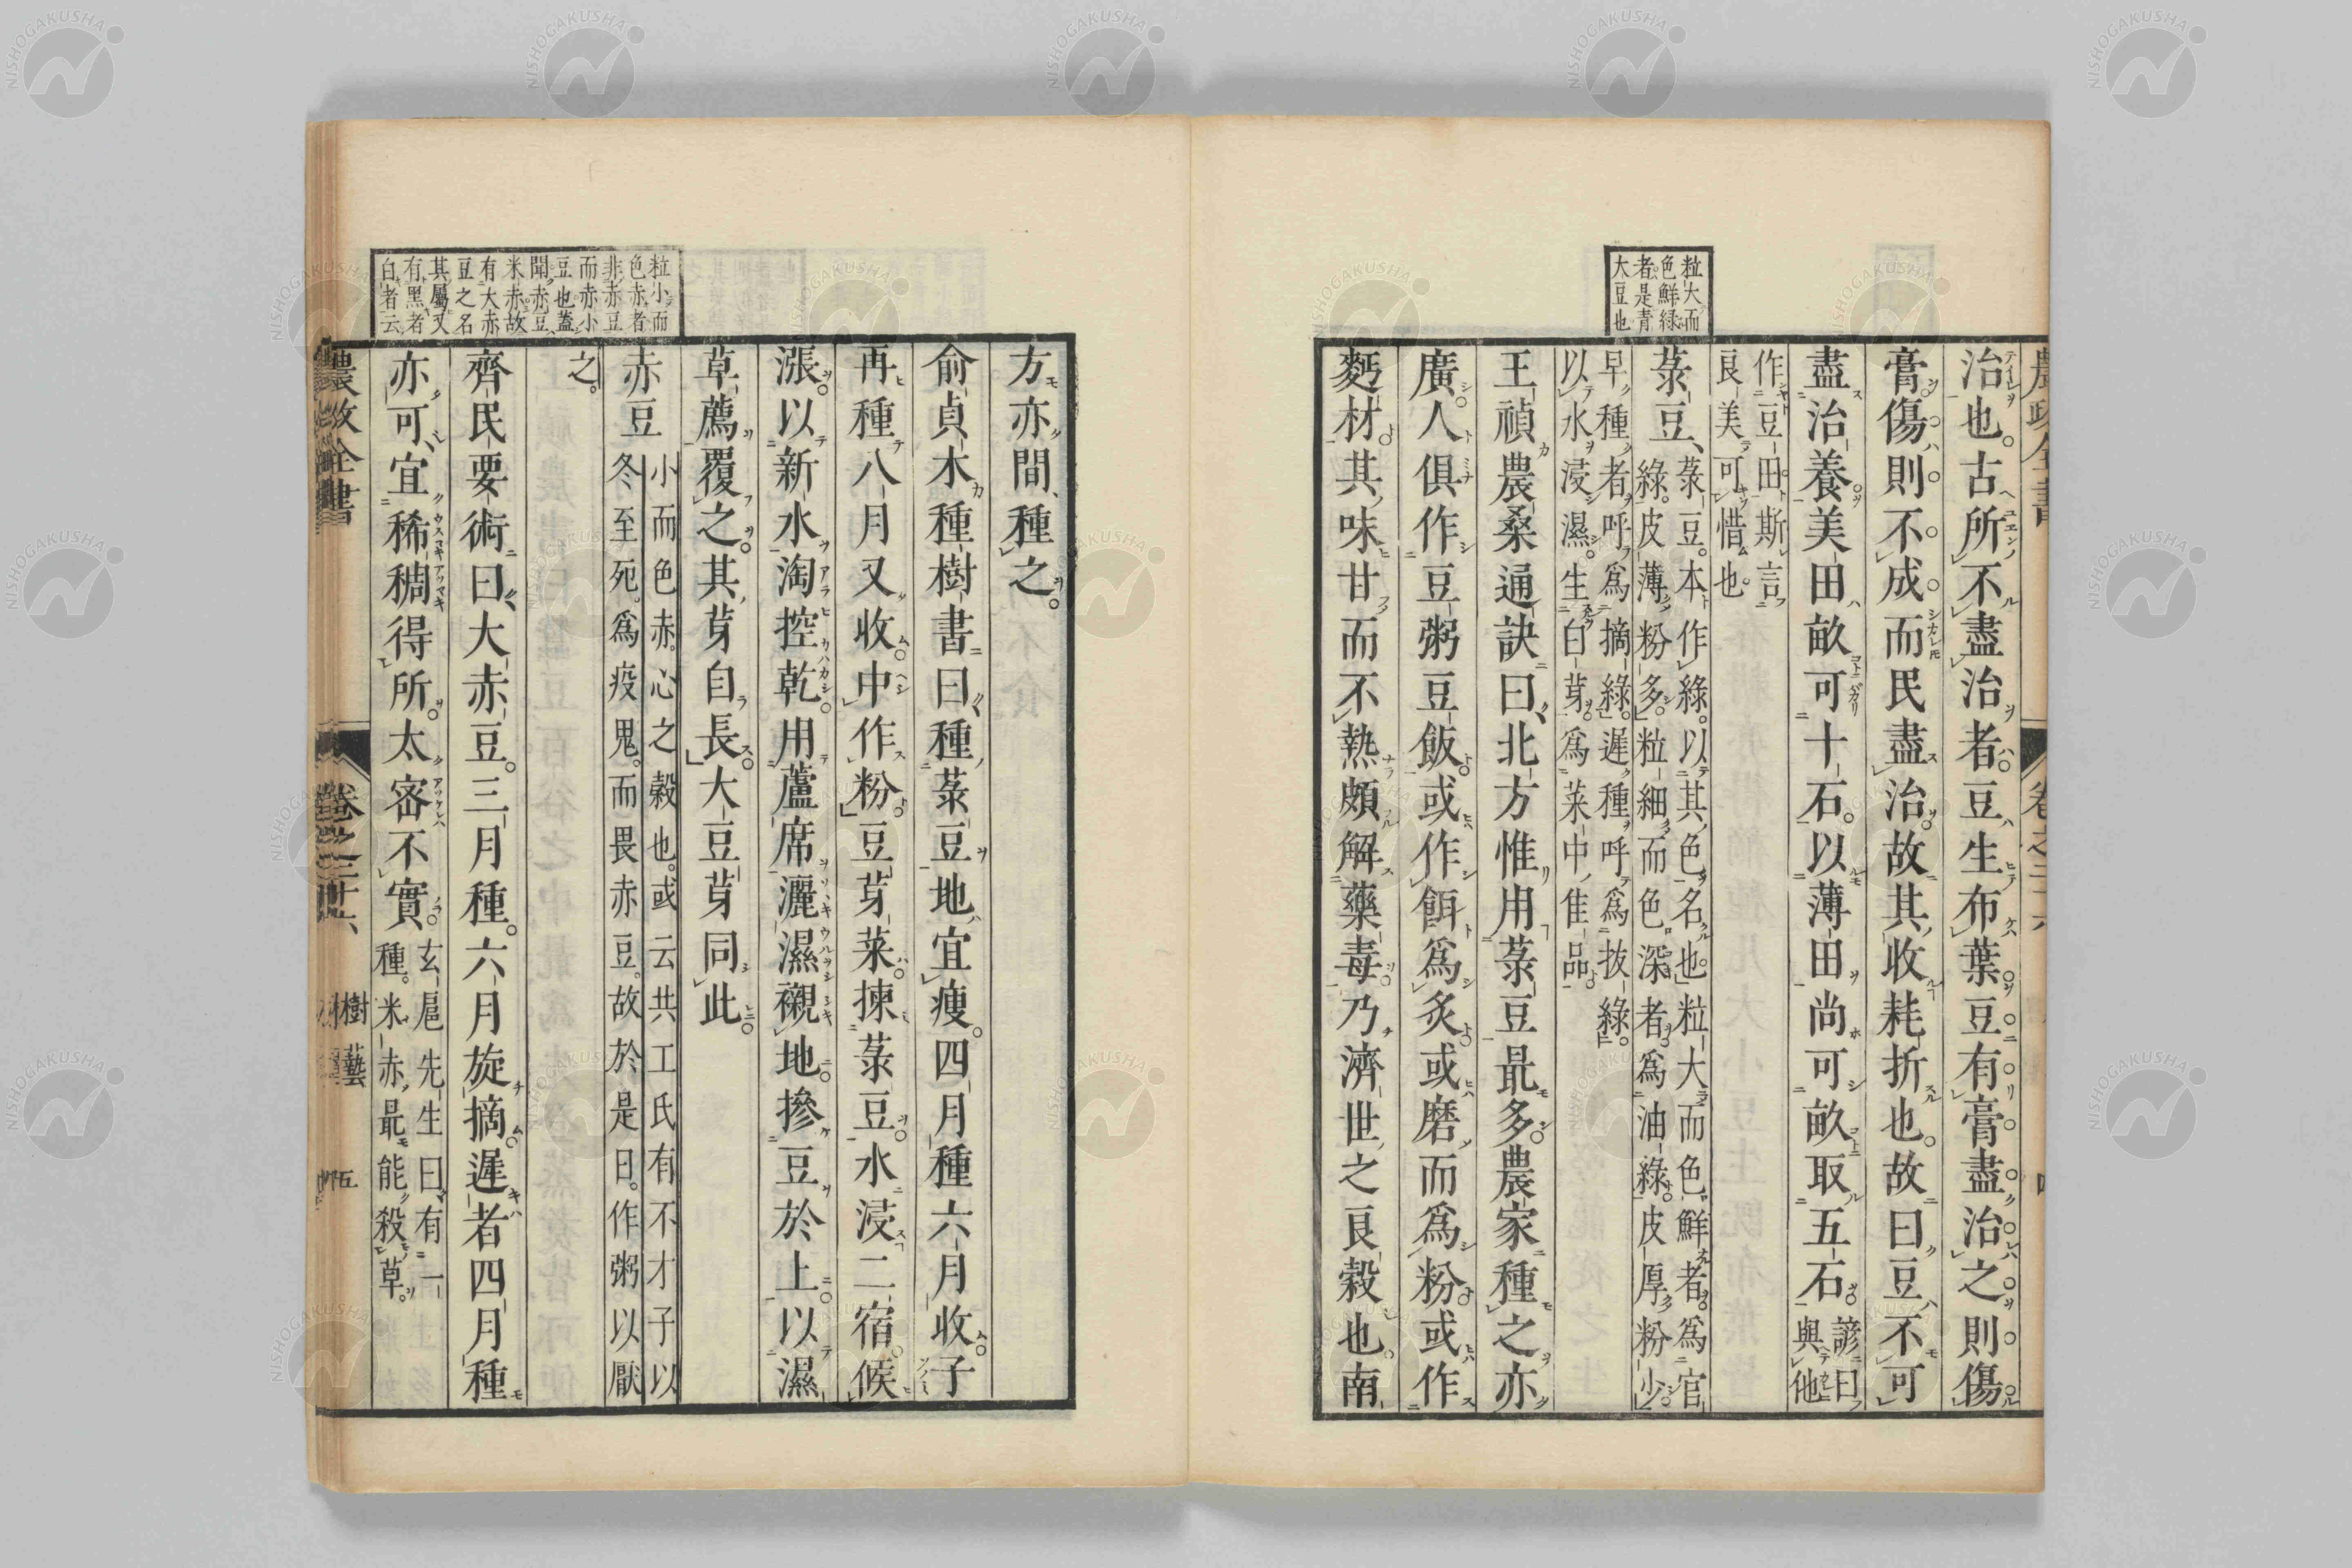 粒大而
色鮮緑
者是青
大豆也
治也。古所不盡治者豆生布葉豆有膏盡治之則傷
膏傷則不成而民盡治故其收耗折也。故曰豆不可
盡治養美田畝可十石。以薄田尚可畝取五石。諺曰與他
作豆田斯言
良美可惜也。
菉豆、菉豆。本作綠。以其色名也。粒大而色鮮者。爲官
綠。皮薄粉多。粒細而色深者爲油綠。皮厚粉少。
早種者呼爲摘綠。遲種呼爲拔綠。
以水浸濕。生白芽。爲菜中佳品。
王禎農桑通訣曰、北方惟用菉豆最多。農家種之亦
廣。人俱作豆粥豆飯。或作餌爲炙。或磨而爲粉。或作
麪材。其味甘而不熱頗解藥毒。乃濟世之良穀也。南
方亦間、種之。
俞貞木種樹書曰、種菉豆地宜瘦。四月種六月收。子
再種八月又收。中作粉。豆芽菜。揀菉豆。水浸二宿候
漲。以新水淘控乾。用蘆席灑濕襯地。摻豆於上。以濕
草薦覆之。其芽自長。大豆芽同此。
赤豆 小而色赤。心之穀也。或云共工氏有不才子以
冬至死。爲疫鬼。而畏赤豆。故於是日。作粥。以厭
之。
齊民要術曰、大赤豆。三月種。六月旋摘。遲者四月種
亦可、宜稀稠得所。太密不實。玄扈先生曰有一
種。米赤最能殺草。
粒小而
色赤者
非赤豆
而赤小
豆也蓋
聞赤豆
米赤故
有大赤
豆之名
其屬又
有黑者
白者云
農政全書
卷之二十六、
樹藝
五
NISHOGAKUSHA